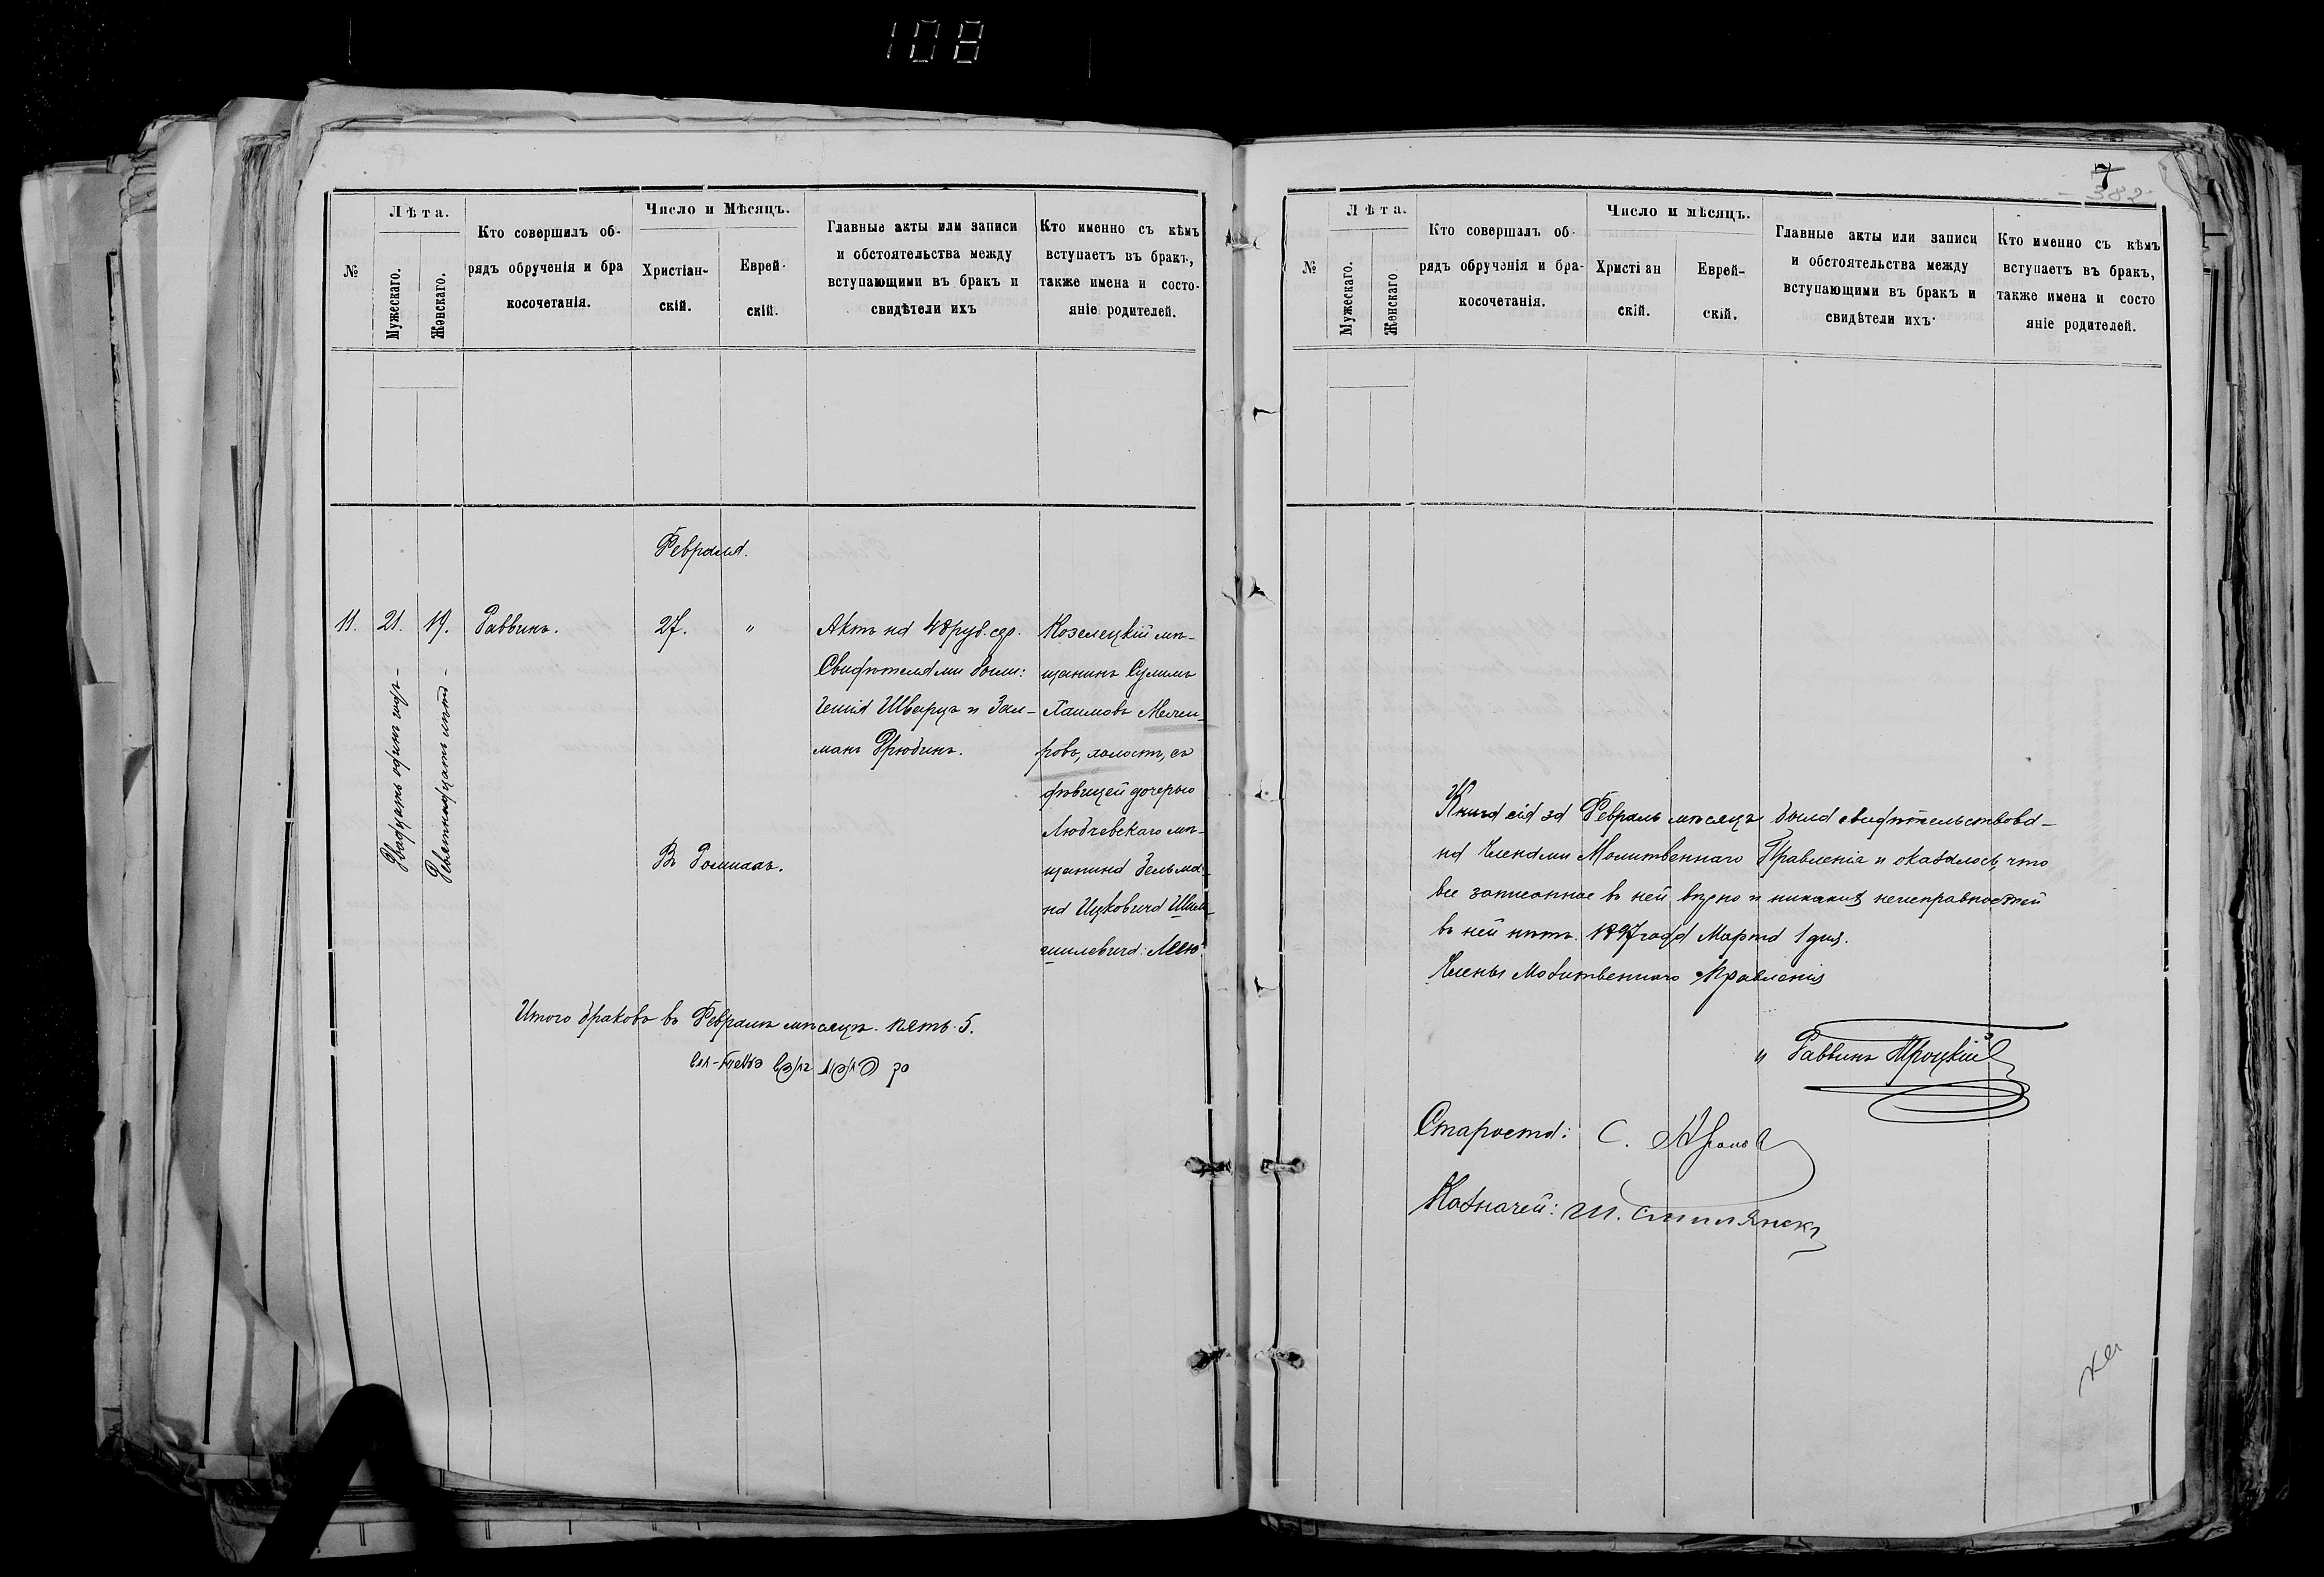 108
№
Лѣта.
Мужескаго.
Женскаго.
Кто совершилъ об-
рядъ обрученія и бра
косочетанія.
Число и Мѣсяцъ.
Христіан-
скій.
Еврей-
скій.
Главные акты или записи
и обстоятельства между
вступающими въ бракъ и
свидѣтели ихъ
Кто именно съ кѣмъ
вступаетъ въ бракъ,
также имена и состо-
яніе родителей.
Февраля.
11. 21. 19. Раввинъ. 27. "
Двадцать одинъ годъ -
Девятнадцать лѣтъ -
Актъ на 48 руб. сер.
Свидѣтелями были:
Шварцъ и Зал-
манъ Фрюдинъ.
Козелецкій мѣ-
щанинъ Сулимъ
Хаимовъ Мелам-
ровъ, холостъ, съ
дѣвицей дочерью
Любчевскаго мѣ-
щанина Зельма-
на Ицковича
Лею.
Въ Ромнахъ.
Итого браковъ въ Февралѣ мѣсяцѣ пять 5.
7
382
№
Лѣта.
Мужескаго.
Женскаго.
Кто совершалъ об-
рядъ обручэнія и бра-
косочетанія.
Число и мѣсяцъ.
Христіан
скій.
Еврей-
скій.
Главные акты или записи
и обстоятельства между
вступающими въ бракъ и
свидѣтели ихъ
Кто именно съ кѣмъ
вступаетъ въ бракъ,
также имена и состо
яніе родителей.
Книга сія за Февраль мѣсяцъ была свидѣтельствова-
на Членами Молитвеннаго Правленія и оказалось, что
все записанное въ ней вѣрно и никакихъ неисправностей
въ ней нѣтъ. 1897 года Марта 1 дня.
Члены Молитвеннаго Правленія
и Раввинъ Троцкій
Староста: С.
Казначей: Ш.